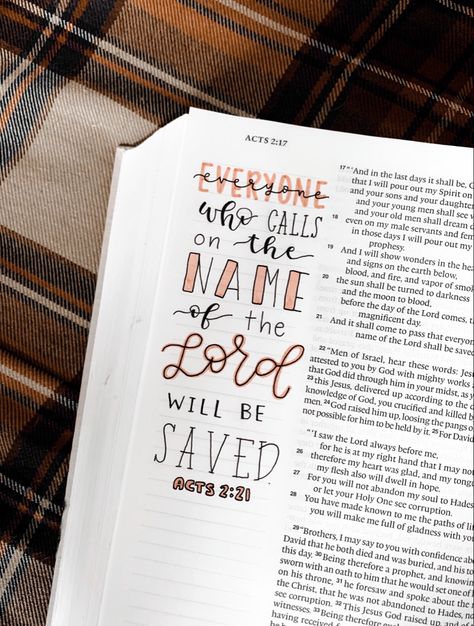 ACTS 2:17
EVERYONE
everyone
who CALLS
on the
NAME
of the
Lord
WILL BE
SAVED
ACTS 2:21
17 "'And in the last days it shall be,
that I will pour out my Spirit on
and your sons and your daughter
and your young men shall see
and your old men shall dream
18 even on my male servants and fem
in those days I will pour out my
prophesy.
19 And I will show wonders in the hea
and signs on the earth below,
blood, and fire, and vapor of smok
20 the sun shall be turned to darkness
and the moon to blood,
before the day of the Lord comes, t
magnificent day.
21 And it shall come to pass that everyone
name of the Lord shall be saved
22 "Men of Israel, hear these words: Jes
attested to you by God with mighty works a
that God did through him in your midst, as y
23 this Jesus, delivered up according to the
knowledge of God, you crucified and killed b
men. 24 God raised him up, loosing the pangs of
not possible for him to be held by it. 25 For David
"'I saw the Lord always before me,
for he is at my right hand that I may not
26 therefore my heart was glad, and my tongue
my flesh also will dwell in hope.
27 For you will not abandon my soul to Hades
or let your Holy One see corruption.
28 You have made known to me the paths of life
you will make me full of gladness with you
29 "Brothers, I may say to you with confidence abo
David that he both died and was buried, and his to
this day. 30 Being therefore a prophet, and knowing
sworn with an oath to him that he would set one of
on his throne, 31 he foresaw and spoke about the
the Christ, that he was not abandoned to Hades, no
see corruption. 32 This Jesus God raised up, and of
witnesses. 33 Being therefore exalted
having received f